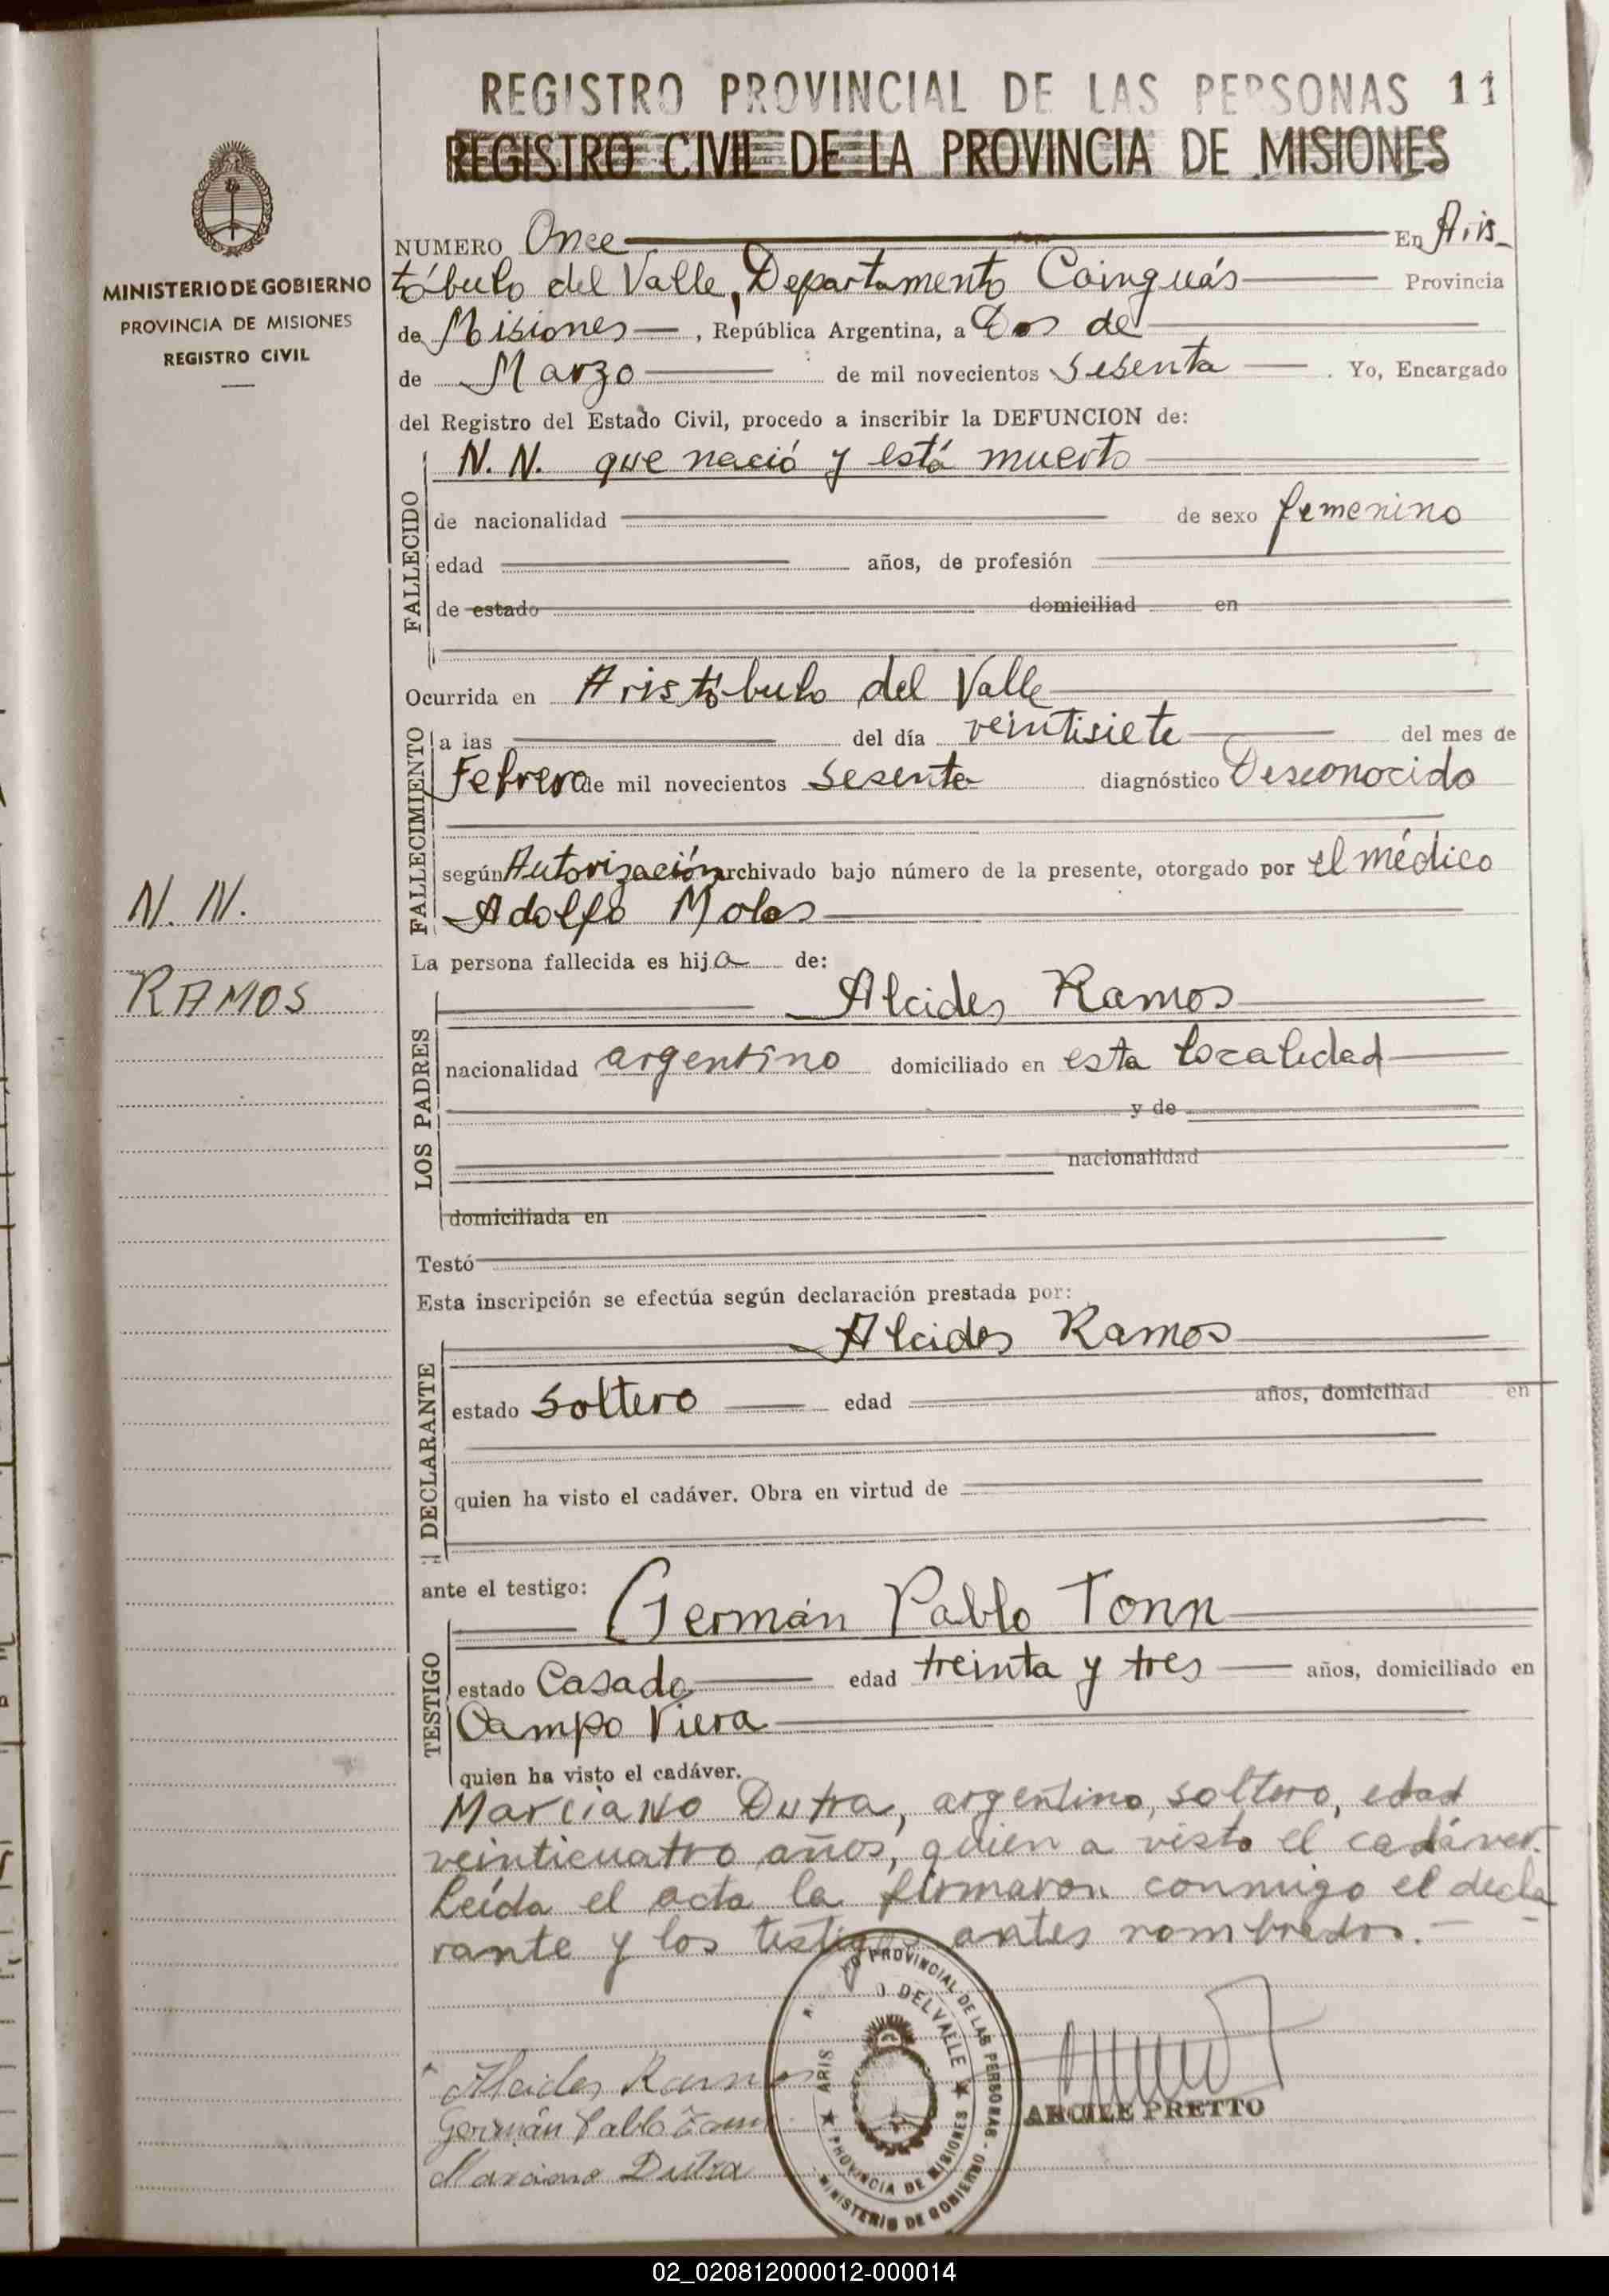 REGISTRO PROVINCIAL DE LAS PERSONAS 11
REGISTRO CIVIL DE LA PROVINCIA DE MISIONES
MINISTERIO DE GOBIERNO
PROVINCIA DE MISIONES
REGISTRO CIVIL
NUMERO Once En Aris-
tóbulo del Valle, Departamento Cainguás Provincia
de Misiones, República Argentina, a Dos de
de Marzo de mil novecientos sesenta. Yo, Encargado
del Registro del Estado Civil, procedo a inscribir la DEFUNCION de:
FALLECIDO
N. N. que nació y está muerto
de nacionalidad de sexo femenino
edad años, de profesión
de estado domiciliad en
Ocurrida en Aristóbulo del Valle
FALLECIMIENTO
a las del día veintisiete del mes de
Febrero de mil novecientos sesenta diagnóstico Desconocido
según Autorización archivado bajo número de la presente, otorgado por el médico
Adolfo Molas
N. N.
RAMOS
La persona fallecida es hija de:
LOS PADRES
Alcides Ramos
nacionalidad argentino domiciliado en esta localidad
y de
nacionalidad
domiciliada en
Testó
Esta inscripción se efectúa según declaración prestada por:
DECLARANTE
Alcides Ramos
estado soltero edad años, domiciliad en
quien ha visto el cadáver. Obra en virtud de
ante el testigo:
TESTIGO
Germán Pablo Tonn
estado Casado edad treinta y tres años, domiciliado en
Campo Viera
quien ha visto el cadáver.
Marciano Dutra, argentino, soltero, edad
veinticuatro años, quien a visto el cadáver.
Leída el acta la firmaron conmigo el decla
rante y los testigos antes nombrados.
Alcides Ramos
Germán Pablo Tonn
Marciano Dutra
PROVINCIAL DE LAS PERSONAS - MINISTERIO DE GOBIERNO
ARIS O DEL VALLE ★ PROVINCIA DE MISIONES ★
ARCILE PRETTO
02_020812000012-000014